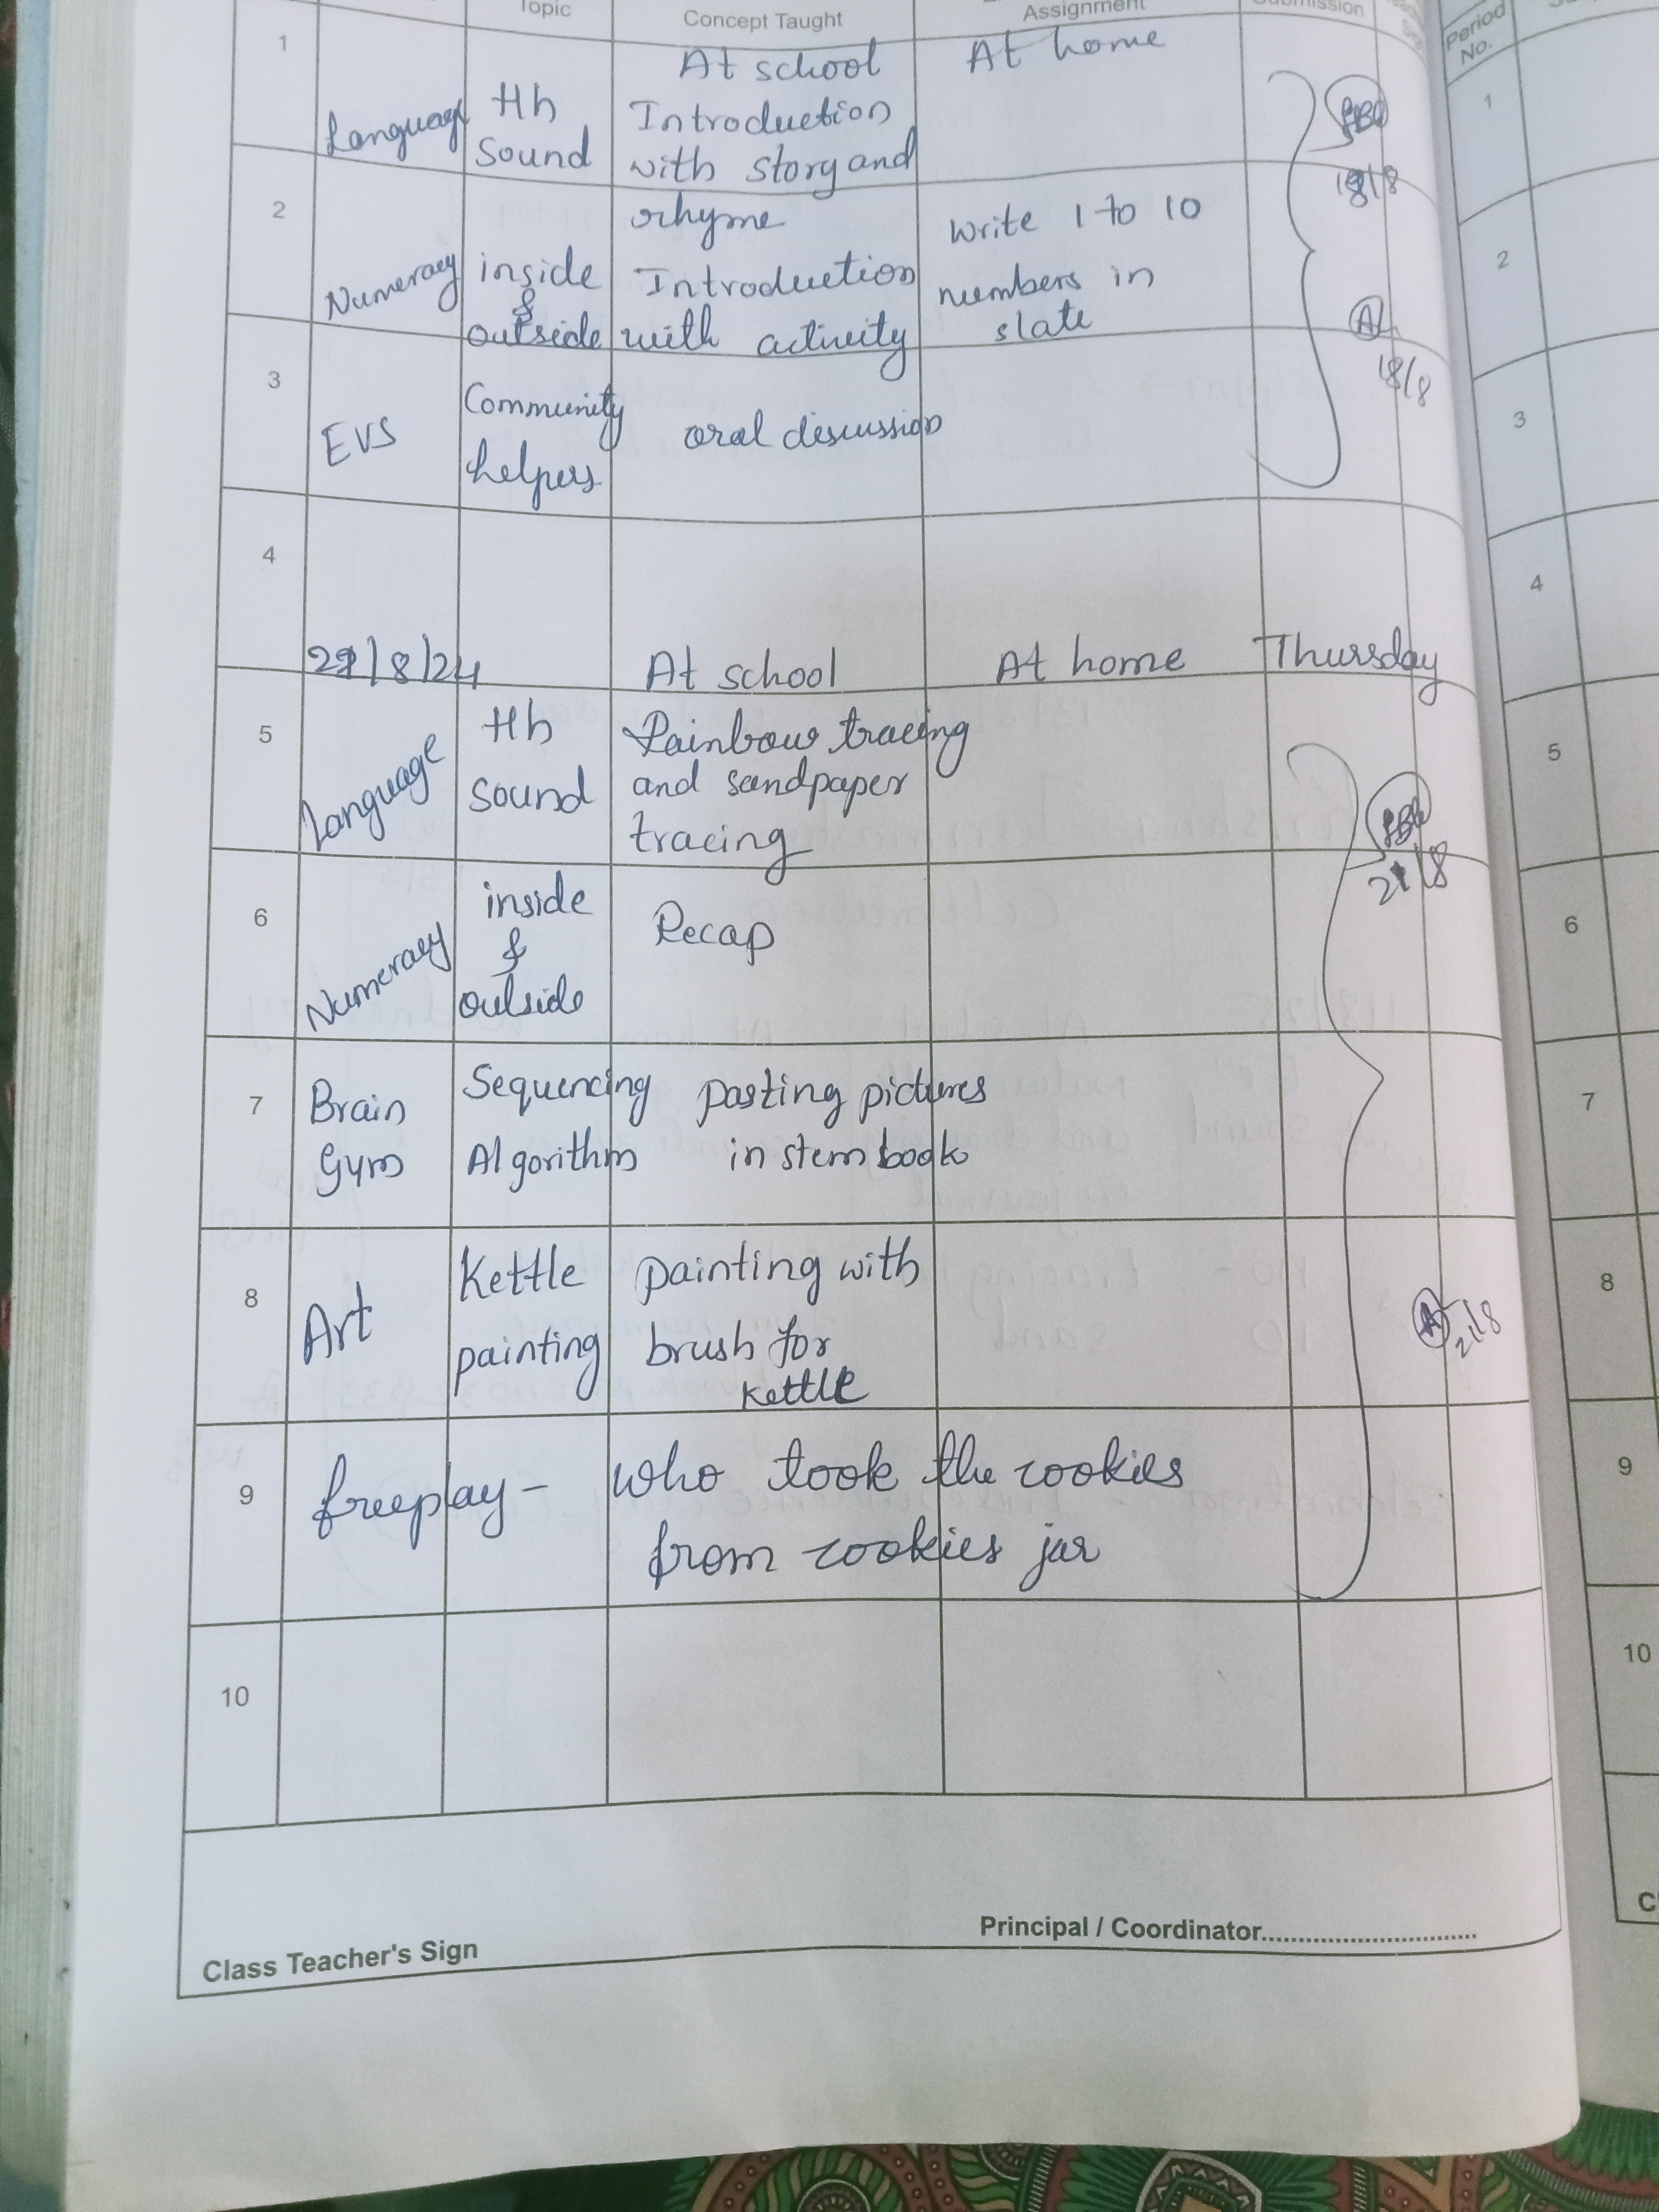 Topic Concept Taught Assignment
1 At school At home
Language Hh Introduction
Sound with story and
2 rhyme Write 1 to 10
Numeracy inside Introduction numbers in
& slate
outside with activity
18/8
18/8
3 Community
EVS helpers oral discussion
4
/8/24 At school At home Thursday
5 Hh Rainbow tracing
Language Sound and sandpaper
tracing
21/8
6 inside Recap
Numeracy &
outside
7 Brain Sequencing pasting pictures
Gym Algorithm in stem book
8 Kettle painting with
Art painting brush for
Kettle
21/8
9 freeplay - who took the cookies
from cookies jar
10
Class Teacher's Sign Principal / Coordinator..............................
Period
No.
1
2
3
4
5
6
7
8
9
10